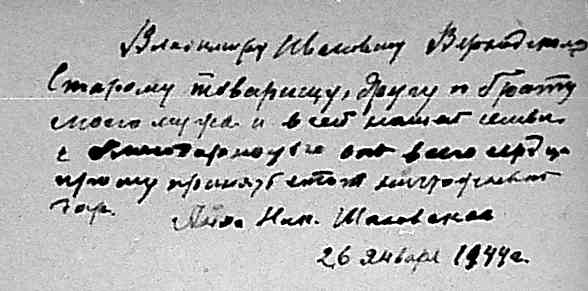 Владимиру Ивановичу Вернадскому
Старому товарищу, другу и брату
моего мужа и всей нашей семьи
с благодарностью от всего сердца
прошу принять этот
дар.
Анна Ник. Шаховская
26 января 1944 г.